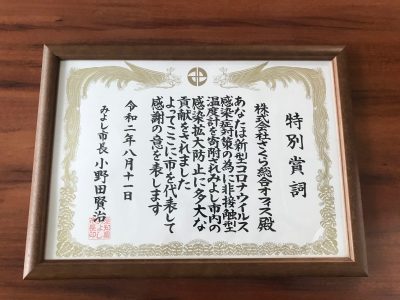 特別賞詞
株式会社さくら総合オフィス殿
あなたは新型コロナウイルス
感染症対策の為に非接触型
温度計を寄附されみよし市内の
感染拡大防止に多大な
貢献をされました
よってここに市を代表して
感謝の意を表します
令和二年八月十一日
みよし市長 小野田賢治